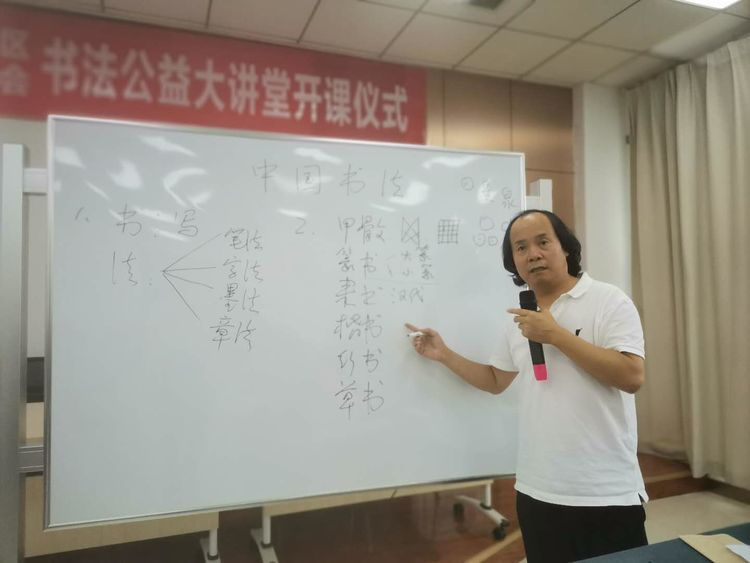 区
会
书法公益大讲堂开课仪式
中国书法
1. 书:写
法:
笔法
字法
墨法
章法
2. 甲
篆书 大 小 篆
隶书 汉代
楷书
行书
草书
泉